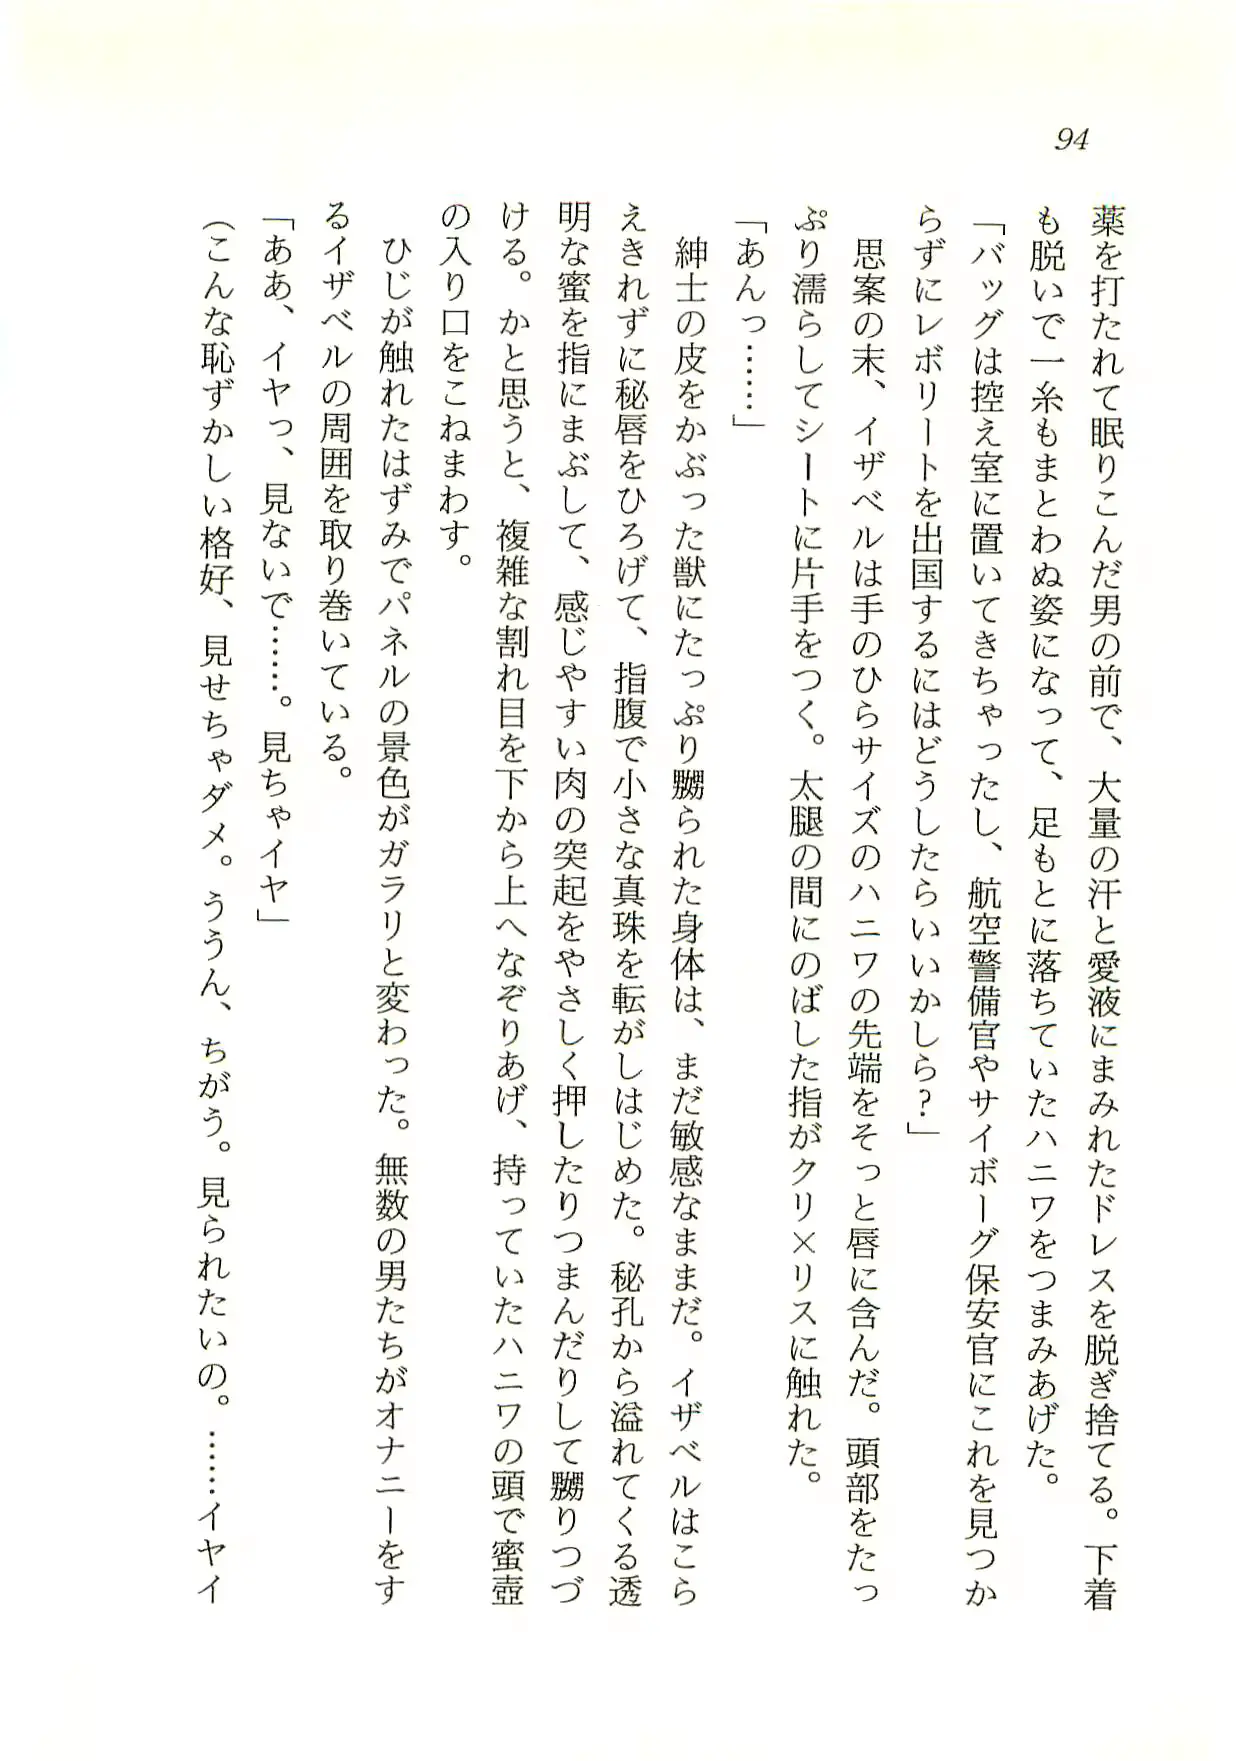 94
薬を打たれて眠りこんだ男の前で、大量の汗と愛液にまみれたドレスを脱ぎ捨てる。下着
も脱いで一糸もまとわぬ姿になって、足もとに落ちていたハニワをつまみあげた。
「バッグは控え室に置いてきちゃったし、航空警備官やサイボーグ保安官にこれを見つか
らずにレボリートを出国するにはどうしたらいいかしら?」
思案の末、イザベルは手のひらサイズのハニワの先端をそっと唇に含んだ。頭部をたっ
ぷり濡らしてシートに片手をつく。太腿の間にのばした指がクリ×リスに触れた。
「あんっ……」
紳士の皮をかぶった獣にたっぷり嬲られた身体は、まだ敏感なままだ。イザベルはこら
えきれずに秘唇をひろげて、指腹で小さな真珠を転がしはじめた。秘孔から溢れてくる透
明な蜜を指にまぶして、感じやすい肉の突起をやさしく押したりつまんだりして嬲りつづ
ける。かと思うと、複雑な割れ目を下から上へなぞりあげ、持っていたハニワの頭で蜜壺
の入り口をこねまわす。
ひじが触れたはずみでパネルの景色がガラリと変わった。無数の男たちがオナニーをす
るイザベルの周囲を取り巻いている。
「ああ、イヤっ、見ないで……。見ちゃイヤ」
(こんな恥ずかしい格好、見せちゃダメ。ううん、ちがう。見られたいの。……イヤイ